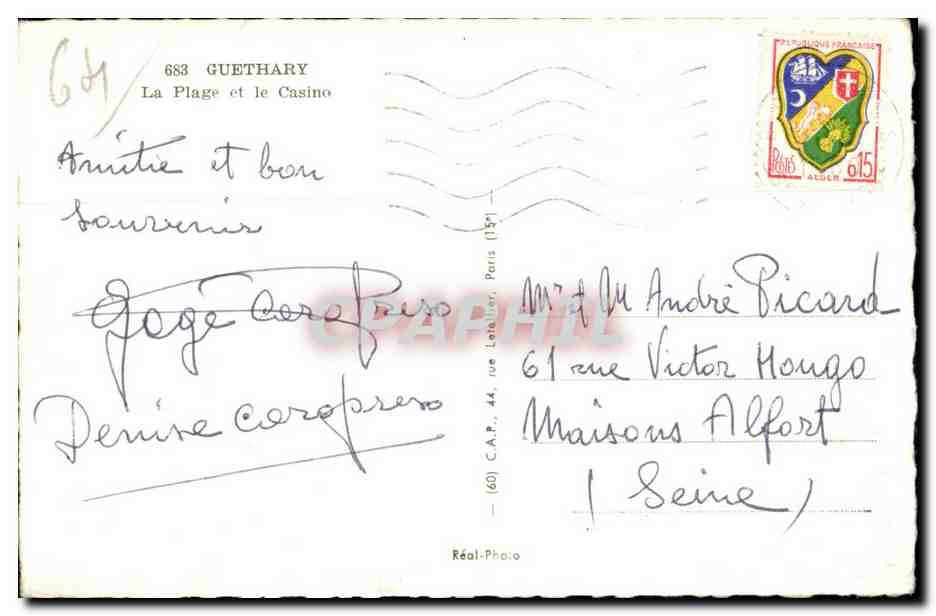 64
683 GUETHARY
La Plage et le Casino
Amitié et bon
Souvenir
Gogé Caropreso
Denise Caropreso
REPUBLIQUE FRANCAISE
POSTES
ALGER
0,15
Mr et M André Picard
61 rue Victor Hougo
Maisons Alfort
(Seine)
(60) C.A.P., 44, rue Letellier, Paris (15e)
Réal-Photo
CPAPHIL